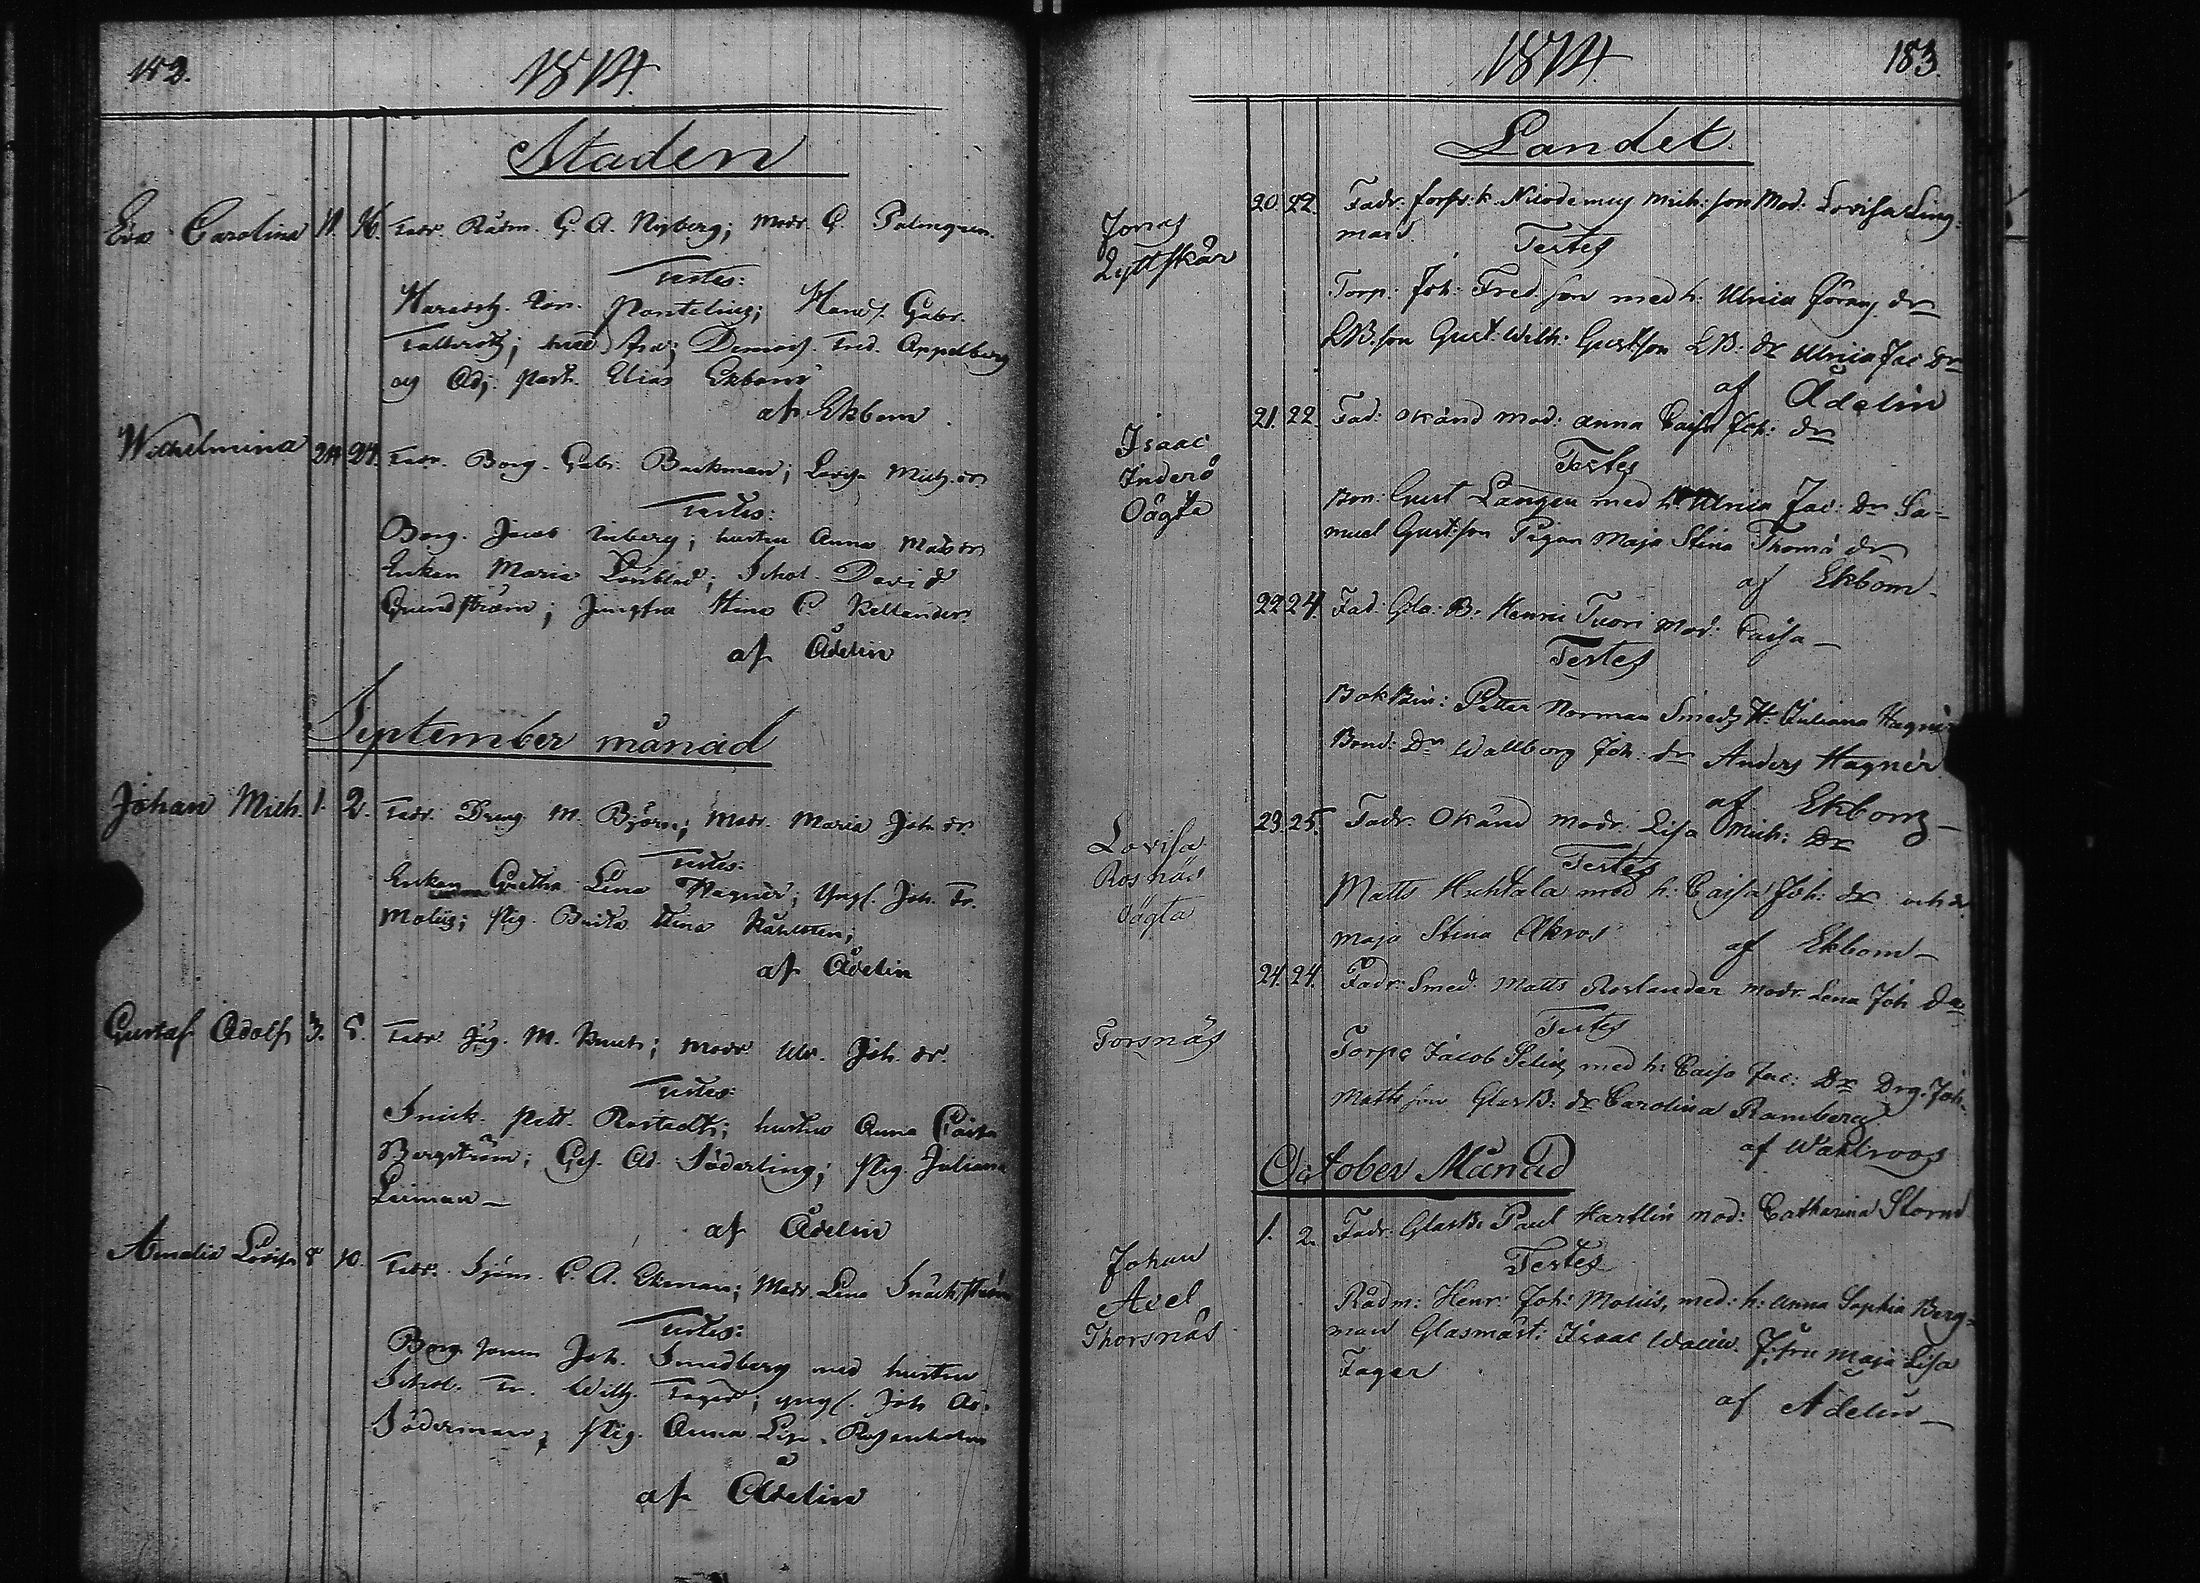 182.
1814.
Staden
Eva Carolina 11. 16. Fadr. Rådm. G. A. Nyberg; Modr. C. Palmgren.
Testes:
Pontelius; Hand. Gabr.
Demois. Fred. Appelberg
og Adj. past. Elias Ekbom
af Ekbom.
Wilhelmina 24 27. Fadr. Borg. Gabr. Backman; Lovisa Mich. dr
Testes:
Borg. Jacob Enberg; hustru Anna Mats dr
Enkan Maria Lönblad; Schol. David
Grundström; Jungfru Stina C. Kellander.
af Ådelin
September månad
Johan Mich. 1. 2. Fadr. Dreng M. Björn; Modr. Maria Joh. dr
Testes:
Enkan Gretha Lena Wagner; Yngl. Joh. Fr.
Molis; Pig. Brita Stina
af Ådelin
Gustaf Adolf 3. 5. Fadr. M. Modr. Ulr. Joh. dr.
Testes:
Snick. Pett. Rostedt; hustru Anna Caisa
Bergström; Ges. Ad. Söderling; Pig. Juliana
Leiman —
af Ådelin
Amalia Lovisa 8 10. Fadr. Sjöm. C. A. Ekman; Modr. Lena
Testes:
Borg. Joh. Smedberg med hustru
Schol. Fr. Wilh. Fager; yngl. Joh. Ad.
Söderman; Pig. Anna Lisa Rosenholm
af Ådelin
1814.
183.
Landet.
Jonas
Lyttskär
20 22. Fadr. Nicodemus Mich: son Mod. Lovisa Ling
mard.
Testes
Torp: Joh: Fred: son med h: Ulrica Görans dr
LB. son Gust. Wilh: Gustson LB: dr Ulrica Jac Dr
af Ådelin
Isaac
Inderö
Oägta
21. 22. Fad: okänd mod: Anna Caisa Joh: dr
Testes
Bon: Gust Langen med h: Ulrica Jac: Dr Sa-
muel Gust:son Pigan Maja Stina Thoma dr
af Ekbom —
22 24. Fad: Gla: B: Henric Tuori Mod: Caisa —
Testes
Bok Bin: Petter Norman Smeds H: Juliana Hagner
Bond: Dr Wallborg Joh. dr Anders Hagnér
af Ekbom —
Lovisa
Rosnäs
Oägta
23. 25. Fadr. Okänd modr. Lisa Mich: Dr
Testes
Matts Huhtala med h: Caisa Joh: dr och
Maja Stina Akros
af Ekbom —
Torsnäs
24. 24. Fadr. Smed. Matts Roslander modr. Lena Joh. dr
Testes
Torpe Jacob Selin med h: Caisa Jac: Dr Drg. Joh.
Matts son Glas B: dr Carolina Ramberg
af Wahlroos
October Månad
Johan
Axel
Thorsnäs
1. 2. Fadr: Glas B: Paul Hartlin mod: Catharina Storm
Testes
Rådm: Henr: Joh: Molis, med: h: Anna Sophia Berg-
man Glasmäst: Isaac Walin. J:fru Maja Lisa
Fager
af Ådelin —